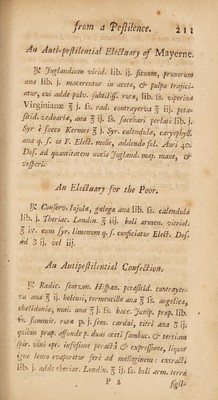 from a Pestilence. 211
An Anti-pestilential Electuary of Mayerne.
℞ Juglandium virid. lib. ij. ficuum, prunorum
ana lib. j. macerentur in aceto, & pulpa trajici-
atur, cui adde pulv. subtiliss. rutæ, lib. ss. viperina
Virginianæ ʒ j. ss. rad. contrayerva ʒ ij. peta-
sitid. zedoaria, ana ʒ ij. ss. sacchari perlati lib. j.
Syr è succo Kermes ʒ j. Syr. calendula, caryophyll.
ana q. s. ut F. Elect. molle, addendo fol. Auri 40.
Dos. ad quantitatem nucis Jugland. maj. mane, &
vesperi.
An Electuary for the Poor.
℞ Conserv. lujula, galega ana lib. ss. calendula
lib. j. Theriac. Londin. ʒ iij. boli armen. vitriol.
ʒ iv. cum syr. limonum q. s. conficiatur Elect. Dos.
ad ʒ ij. vel iij.
An Antipestilential Confection.
℞ Radic. scorzon. Hispan. petasitid. contrayer-
va ana ʒ ij. helenii, tormentilla ana ʒ ss. angelica,
chelidonia, mai. ana ʒ j. ss. bacc. Junip. prap. lib.
ss. summit. ruta p. j. sem. cardui, citri ana ʒ ij.
quibus prap. affunde p. duas aceti sambuc. & tertiam
spir. vini opt. infusione peractâ & expressione, liquor
igne lento evaporetur ferè ad mellaginem: extracti
lib. j. adde theriac. Londin. ʒ ij. ss. boli arm. terra
P 2 sigil-